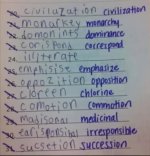 civiluzation civilization
monarkey monarchy
domonints dominance
corispond correspond
24. illitrate
emphisise emphasize
oppozition opposition
cloreen chlorine
comotion commotion
madisonal medicinal
earisponsital irresponsible
sucsetion succession